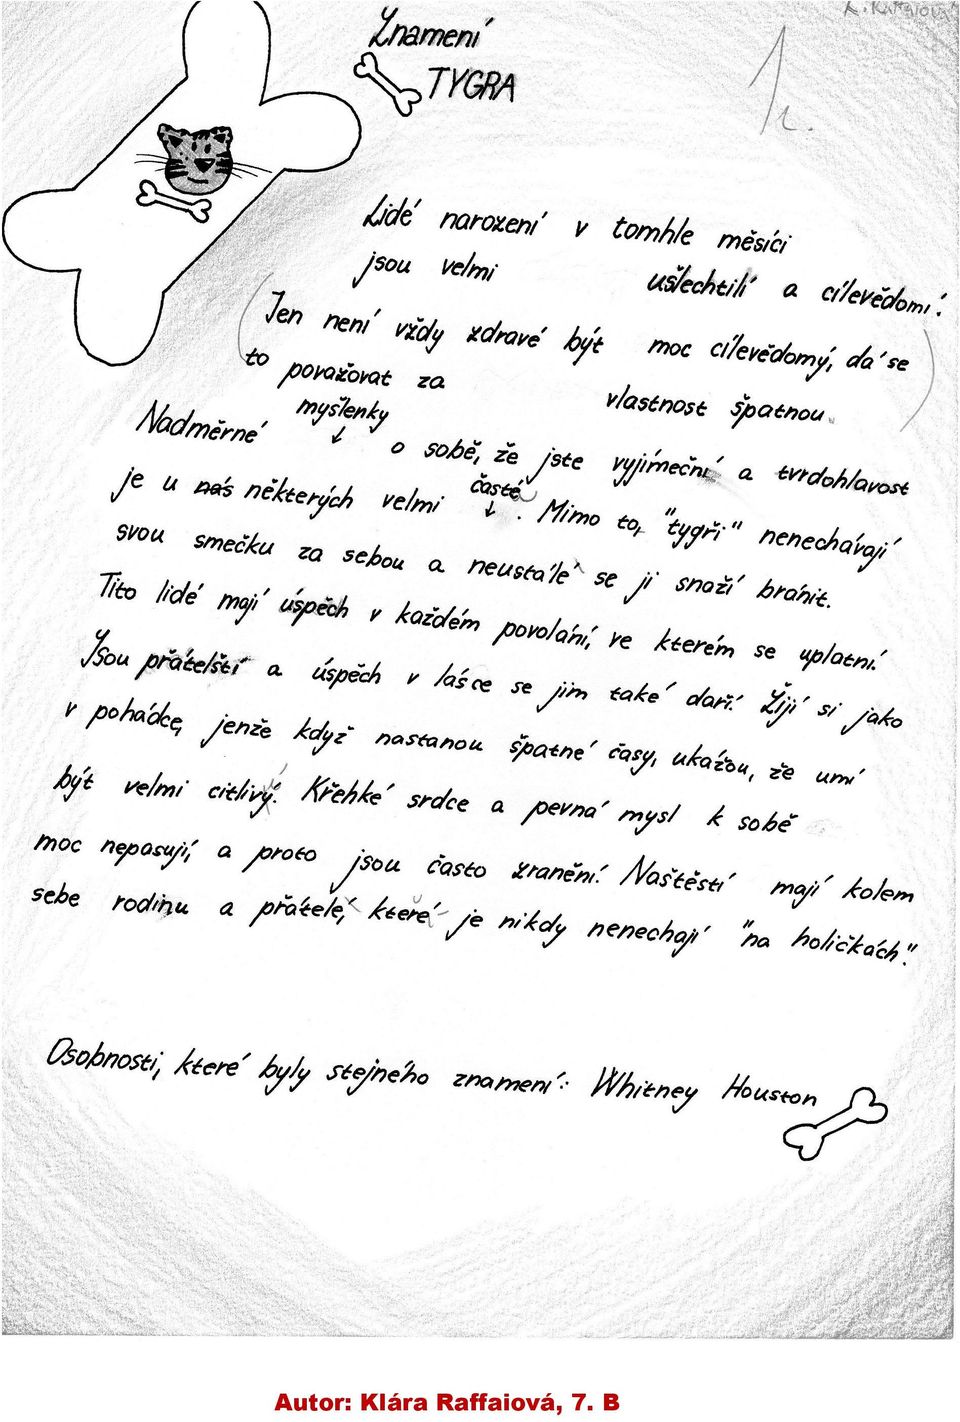 Znamení
TYGRA
1
Lidé narození v tomhle měsíci
jsou velmi ušlechtilí a cílevědomí.
Jen není vždy zdravé být moc cílevědomý, dá se
to považovat za vlastnost špatnou.
Nadměrné myšlenky o sobě, že jste vyjímeční a tvrdohlavost
je u nás některých velmi časté. Mimo to, "tygři" nenechávají
svou smečku za sebou a neustále se ji snaží bránit.
Tito lidé mají úspěch v každém povolání, ve kterém se uplatní.
Jsou přátelští a úspěch v lásce se jim také daří. Žijí si jako
v pohádce, jenže když nastanou špatné časy, ukážou, že umí
být velmi citlivý. Křehké srdce a pevná mysl k sobě
moc nepasují, a proto jsou často zranění. Naštěstí mají kolem
sebe rodinu a přátele, které je nikdy nenechají "na holičkách".
Osobnosti, které byly stejného znamení: Whitney Houston
Autor: Klára Raffaiová, 7. B